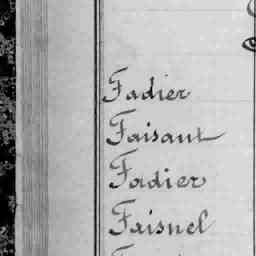 Fadier
Faisant
Fadier
Faisnel